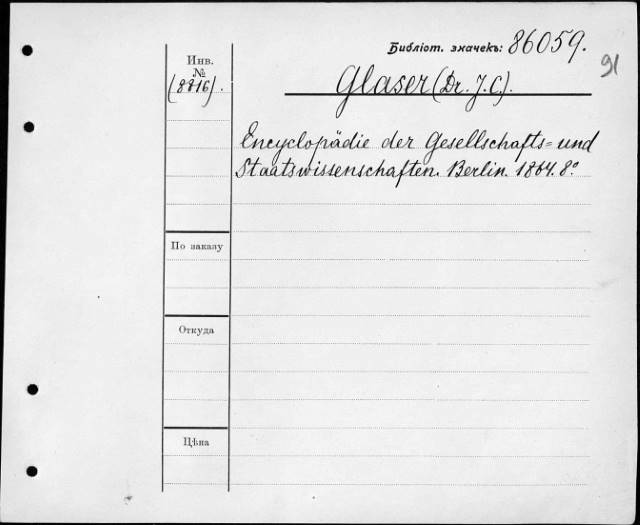 Библіот. значекъ: 86059.
91
Инв.
№
(8816).
Glaser (Dr. J. C.).
Encyclopädie der Gesellschafts= und
Staatswissenschaften. Berlin. 1864. 8°.
По заказу
Откуда
Цѣна